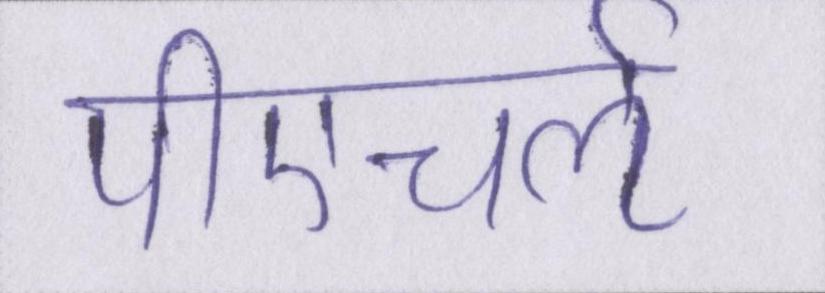 पीएचर्ल